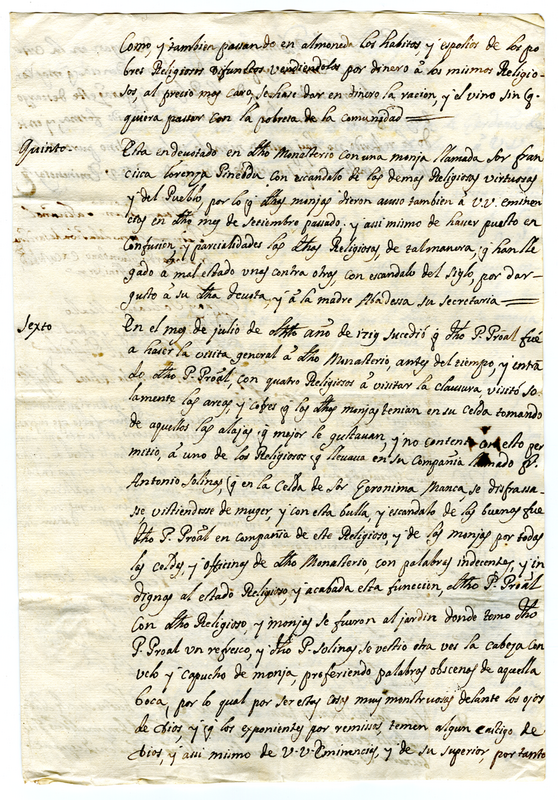 Como, y tambien passando en almoneda los habitos, y espolios de los po
bres Religiosos difunctos vendiendolos por dinero à los mismos Religio-
sos, al precio mas caro, se hase dar en dinero la racion, y el vino sin q̃
quiera passar con la pobreta de la comunidad
Quinto. Esta endevotado en dh̃o Monasterio con una monja llamada Sor Fran
cisca Lorenza Pinedda con escandalo de las demas Religiosas virtuosas
y del Pueblo, por lo q̃ dh̃as monjas dieron auiso tambien à V.V. Eminen
cias en dh̃o mes de Setiembre passado: y assi mismo de haver puesto en
confusion, y parcialidades las dh̃as Religiosas, de tal manera, q̃ han lle
gado à mal estado unas contra otras, con escandalo del siglo, por dar
gusto à su dh̃a devota, y à la madre Abadessa su Secretaria
Sexto En el mes de julio de dh̃o año de 1719 sucediò q̃ dh̃o P. Proãl fuè
à hacer la visita general à dh̃o Monasterio, antes del tiempo, y entrã
do dh̃o P. Proãl, con quatro Religiosos à visitar la clausura, visitò so
lamente las arcas, y cofres q̃ las dh̃as monjas tenian en su Celda tomando
de aquellos las alajas q̃ mejor le gustavan, y no contento con esto per
mitio, à uno de los Religiosos q̃ llevava en su Compañia llamado fr.
Antonio Solinas, q̃ en la Celda de Sor Geronima Manca, se disfrassa-
se vistiendose de muger, y con esta bulla, y escandalo de las buenas fuè
dh̃o P. Proãl en compañia de este Religioso, y de las monjas por todas
las celdas, y officinas de dh̃o Monasterio con palabras indecentes, y in
dignas al estado Religioso, y acabada esta funcion, dh̃o P. Proãl
con dh̃o Religioso, y monjas se fueron al jardin donde tomo dh̃o
P. Proal un refresco, y dh̃o P. Solinas se vestio otra ves la cabeza con
velo, y capucho de monja, proferiendo palabras obscenas de aquella
boca, por lo qual por ser estas cosas muy monstruosas delante los ojos
de Dios, y q̃ los exponientes por remissas temen algun castigo de
Dios, y assi mismo de V.V. Eminencias, y de su superior, por tanto